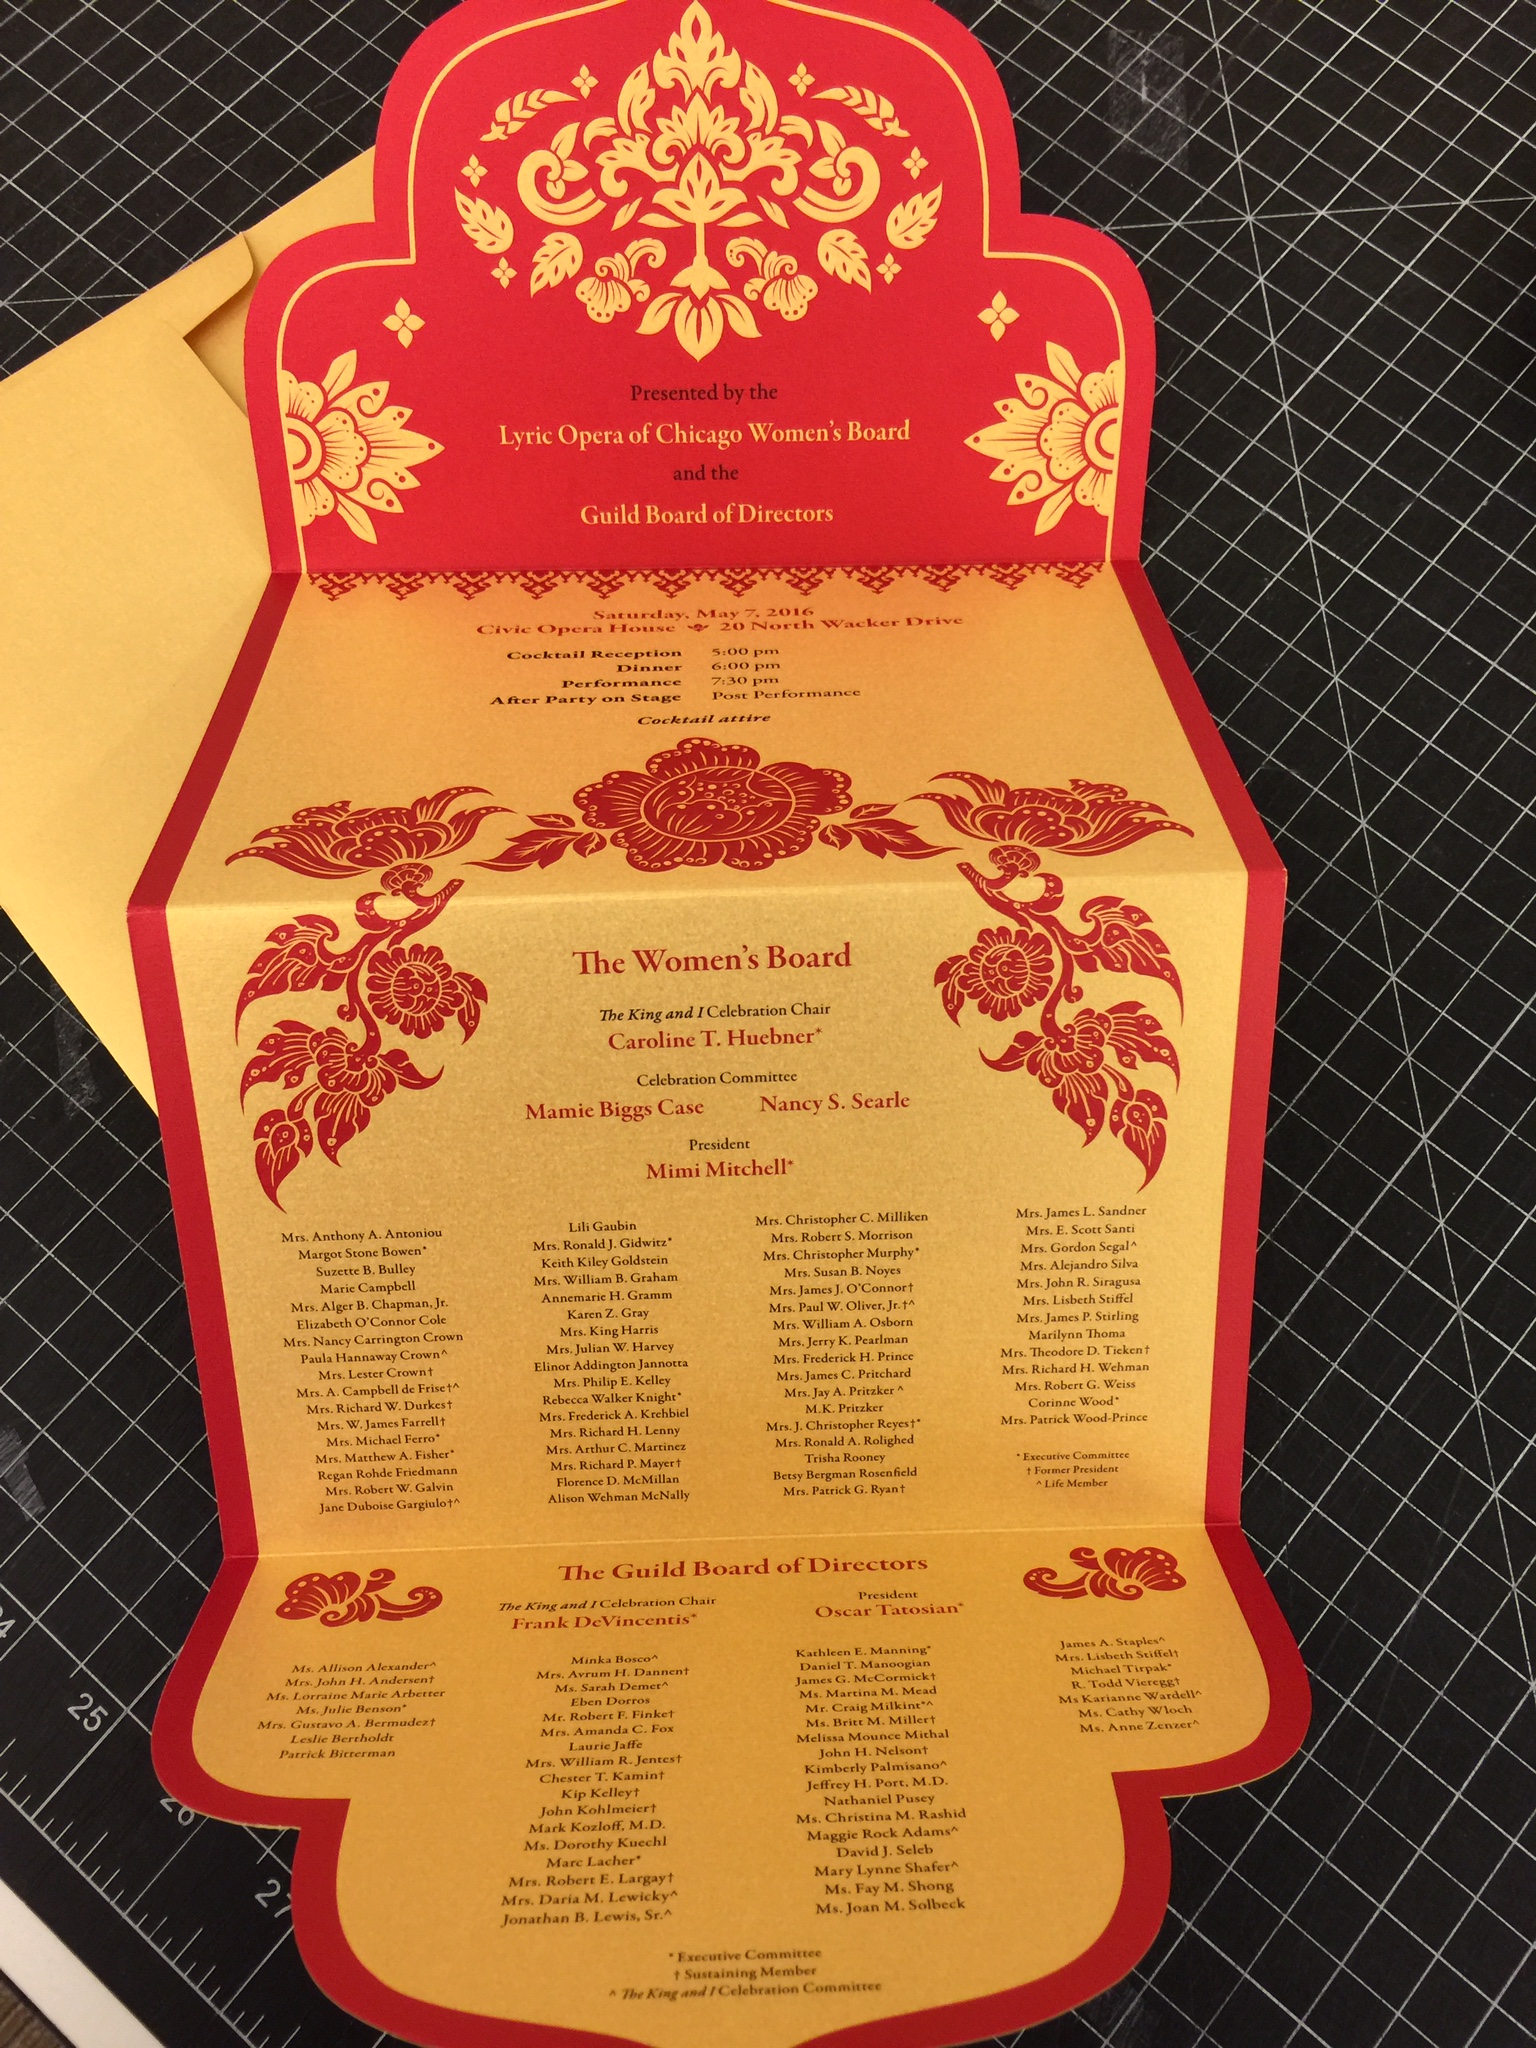 Presented by the
Lyric Opera of Chicago Women's Board
and the
Guild Board of Directors
Saturday, May 7, 2016
Civic Opera House 20 North Wacker Drive
Cocktail Reception 5:00 pm
Dinner 6:00 pm
Performance 7:30 pm
After Party on Stage Post Performance
Cocktail attire
The Women's Board
The King and I Celebration Chair
Caroline T. Huebner*
Celebration Committee
Mamie Biggs Case Nancy S. Searle
President
Mimi Mitchell*
Mrs. Anthony A. Antoniou
Margot Stone Bowen*
Suzette B. Bulley
Marie Campbell
Mrs. Alger B. Chapman, Jr.
Elizabeth O'Connor Cole
Mrs. Nancy Carrington Crown
Paula Hannaway Crown^
Mrs. Lester Crown†
Mrs. A. Campbell de Frise†^
Mrs. Richard W. Durkes†
Mrs. W. James Farrell†
Mrs. Michael Ferro*
Mrs. Matthew A. Fisher*
Regan Rohde Friedmann
Mrs. Robert W. Galvin
Jane Duboise Gargiulo†^
Lili Gaubin
Mrs. Ronald J. Gidwitz*
Keith Kiley Goldstein
Mrs. William B. Graham
Annemarie H. Gramm
Karen Z. Gray
Mrs. King Harris
Mrs. Julian W. Harvey
Elinor Addington Jannotta
Mrs. Philip E. Kelley
Rebecca Walker Knight*
Mrs. Frederick A. Krehbiel
Mrs. Richard H. Lenny
Mrs. Arthur C. Martinez
Mrs. Richard P. Mayer†
Florence D. McMillan
Alison Wehman McNally
Mrs. Christopher C. Milliken
Mrs. Robert S. Morrison
Mrs. Christopher Murphy*
Mrs. Susan B. Noyes
Mrs. James J. O'Connor†
Mrs. Paul W. Oliver, Jr.†^
Mrs. William A. Osborn
Mrs. Jerry K. Pearlman
Mrs. Frederick H. Prince
Mrs. James C. Pritchard
Mrs. Jay A. Pritzker ^
M.K. Pritzker
Mrs. J. Christopher Reyes†*
Mrs. Ronald A. Rolighed
Trisha Rooney
Betsy Bergman Rosenfield
Mrs. Patrick G. Ryan†
Mrs. James L. Sandner
Mrs. E. Scott Santi
Mrs. Gordon Segal^
Mrs. Alejandro Silva
Mrs. John R. Siragusa
Mrs. Lisbeth Stiffel
Mrs. James P. Stirling
Marilynn Thoma
Mrs. Theodore D. Tieken†
Mrs. Richard H. Wehman
Mrs. Robert G. Weiss
Corinne Wood*
Mrs. Patrick Wood-Prince
* Executive Committee
† Former President
^ Life Member
The Guild Board of Directors
The King and I Celebration Chair
Frank DeVincentis*
President
Oscar Tatosian*
Ms. Allison Alexander^
Mrs. John H. Andersen†
Ms. Lorraine Marie Arbetter
Ms. Julie Benson*
Mrs. Gustavo A. Bermudez†
Leslie Bertholdt
Patrick Bitterman
Minka Bosco^
Mrs. Avrum H. Dannen†
Ms. Sarah Demet^
Eben Dorros
Mr. Robert F. Finke†
Mrs. Amanda C. Fox
Laurie Jaffe
Mrs. William R. Jentes†
Chester T. Kamin†
Kip Kelley†
John Kohlmeier†
Mark Kozloff, M.D.
Ms. Dorothy Kuechl
Marc Lacher*
Mrs. Robert E. Largay†
Mrs. Daria M. Lewicky^
Jonathan B. Lewis, Sr.^
Kathleen E. Manning*
Daniel T. Manoogian
James G. McCormick†
Ms. Martina M. Mead
Mr. Craig Milkint*^
Ms. Britt M. Miller†
Melissa Mounce Mithal
John H. Nelson†
Kimberly Palmisano^
Jeffrey H. Port, M.D.
Nathaniel Pusey
Ms. Christina M. Rashid
Maggie Rock Adams^
David J. Seleb
Mary Lynne Shafer^
Ms. Fay M. Shong
Ms. Joan M. Solbeck
James A. Staples^
Mrs. Lisbeth Stiffel†
Michael Tirpak*
R. Todd Vieregg†
Ms Karianne Wardell^
Ms. Cathy Wloch
Ms. Anne Zenzer^
* Executive Committee
† Sustaining Member
^ The King and I Celebration Committee
25
26
27